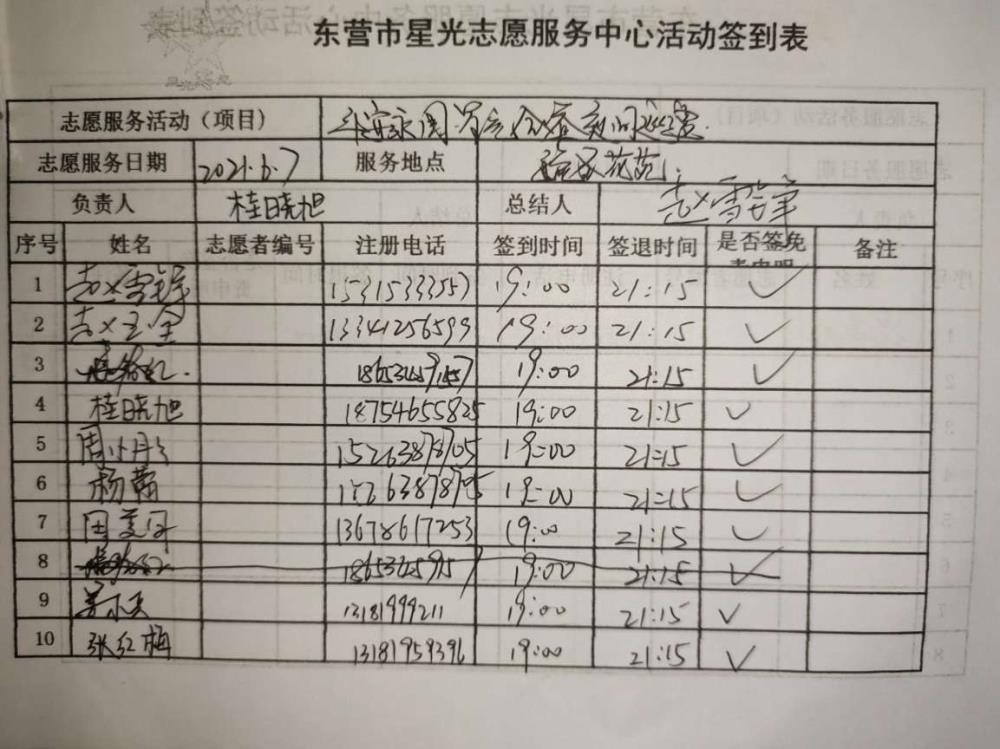 东营市星光志愿服务中心活动签到表
志愿服务活动（项目） 平安
志愿服务日期 2021.6.7 服务地点 花苑
负责人 桂晓旭 总结人 赵雪锋
序号 姓名 志愿者编号 注册电话 签到时间 签退时间 是否签免 备注
1 赵雪锋 15315333557 19:00 21:15 ✓
2 赵玉全 13341256599 19:00 21:15 ✓
3 19:00 21:15 ✓
4 桂晓旭 18754655825 19:00 21:15 ✓
5 周小月 15263878705 19:00 21:15 ✓
6 杨 19:00 21:15 ✓
7 田 13678617253 19:00 21:15 ✓
8 19:00 21:15 ✓
9 13181999211 19:00 21:15 ✓
10 张红梅 13181959396 19:00 21:15 ✓